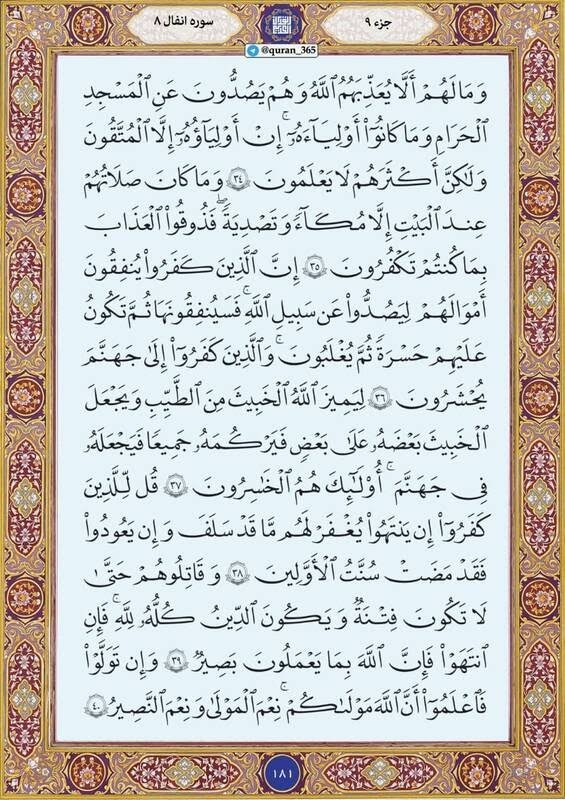 جزء ۹
سوره انفال ۸
@quran_365
وَمَا لَهُمْ أَلَّا يُعَذِّبَهُمُ اللَّهُ وَهُمْ يَصُدُّونَ عَنِ الْمَسْجِدِ
الْحَرَامِ وَمَا كَانُوٓا۟ أَوْلِيَآءَهُۥٓ ۚ إِنْ أَوْلِيَآؤُهُۥٓ إِلَّا الْمُتَّقُونَ
وَلَٰكِنَّ أَكْثَرَهُمْ لَا يَعْلَمُونَ ۝٣٤ وَمَا كَانَ صَلَاتُهُمْ
عِندَ الْبَيْتِ إِلَّا مُكَآءً وَتَصْدِيَةً ۚ فَذُوقُوا۟ الْعَذَابَ
بِمَا كُنتُمْ تَكْفُرُونَ ۝٣٥ إِنَّ الَّذِينَ كَفَرُوا۟ يُنفِقُونَ
أَمْوَالَهُمْ لِيَصُدُّوا۟ عَن سَبِيلِ اللَّهِ ۚ فَسَيُنفِقُونَهَا ثُمَّ تَكُونُ
عَلَيْهِمْ حَسْرَةً ثُمَّ يُغْلَبُونَ ۗ وَالَّذِينَ كَفَرُوٓا۟ إِلَىٰ جَهَنَّمَ
يُحْشَرُونَ ۝٣٦ لِيَمِيزَ اللَّهُ الْخَبِيثَ مِنَ الطَّيِّبِ وَيَجْعَلَ
الْخَبِيثَ بَعْضَهُۥ عَلَىٰ بَعْضٍ فَيَرْكُمَهُۥ جَمِيعًا فَيَجْعَلَهُۥ
فِى جَهَنَّمَ ۚ أُو۟لَٰٓئِكَ هُمُ الْخَاسِرُونَ ۝٣٧ قُل لِّلَّذِينَ
كَفَرُوٓا۟ إِن يَنتَهُوا۟ يُغْفَرْ لَهُم مَّا قَدْ سَلَفَ وَإِن يَعُودُوا۟
فَقَدْ مَضَتْ سُنَّتُ الْأَوَّلِينَ ۝٣٨ وَقَاتِلُوهُمْ حَتَّىٰ
لَا تَكُونَ فِتْنَةٌ وَيَكُونَ الدِّينُ كُلُّهُۥ لِلَّهِ ۚ فَإِنِ
انتَهَوْا۟ فَإِنَّ اللَّهَ بِمَا يَعْمَلُونَ بَصِيرٌ ۝٣٩ وَإِن تَوَلَّوْا۟
فَاعْلَمُوٓا۟ أَنَّ اللَّهَ مَوْلَىٰكُمْ ۚ نِعْمَ الْمَوْلَىٰ وَنِعْمَ النَّصِيرُ ۝٤٠
۱۸۱